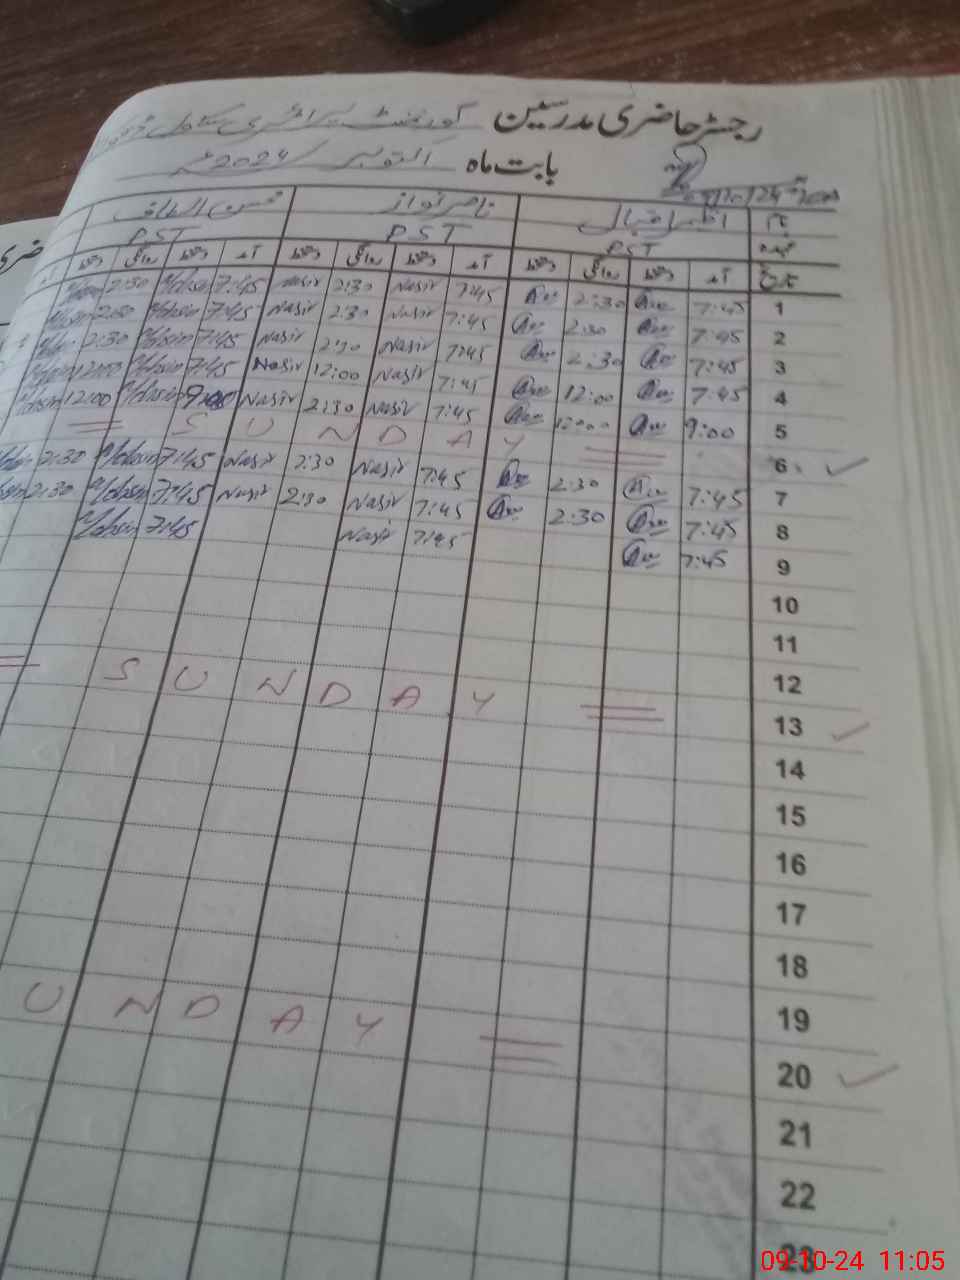 رجسٹر حاضری مدرسین گورنمنٹ پرائمری سکول
بابت ماہ اکتوبر 2024ء
نام اظہر اقبال ناصر نواز محسن الطاف
عہدہ PST PST PST
تاریخ آمد دستخط روانگی دستخط آمد دستخط روانگی دستخط آمد دستخط روانگی دستخط
1 7:45 2:30 7:45 Nasir 2:30 Nasir 7:45 Mohsin 2:30
2 7:45 2:30 7:45 Nasir 2:30 Nasir 7:45 Mohsin 2:30 Mohsin
3 7:45 2:30 7:45 Nasir 2:30 Nasir 7:45 Mohsin 2:30
4 7:45 12:00 7:45 Nasir 12:00 Nasir 7:45 Mohsin 12:00
5 9:00 12:00 7:45 Nasir 2:30 Nasir 9:00 Mohsin 12:00 Mohsin
6 SUNDAY
7 7:45 2:30 7:45 Nasir 2:30 Nasir 7:45 Mohsin 2:30
8 7:45 2:30 7:45 Nasir 2:30 Nasir 7:45 Mohsin 2:30
9 7:45 7:45 Nasir 7:45 Mohsin
10
11
12
13 SUNDAY
14
15
16
17
18
19
20 UNDAY
21
22
23
09-10-24 11:05